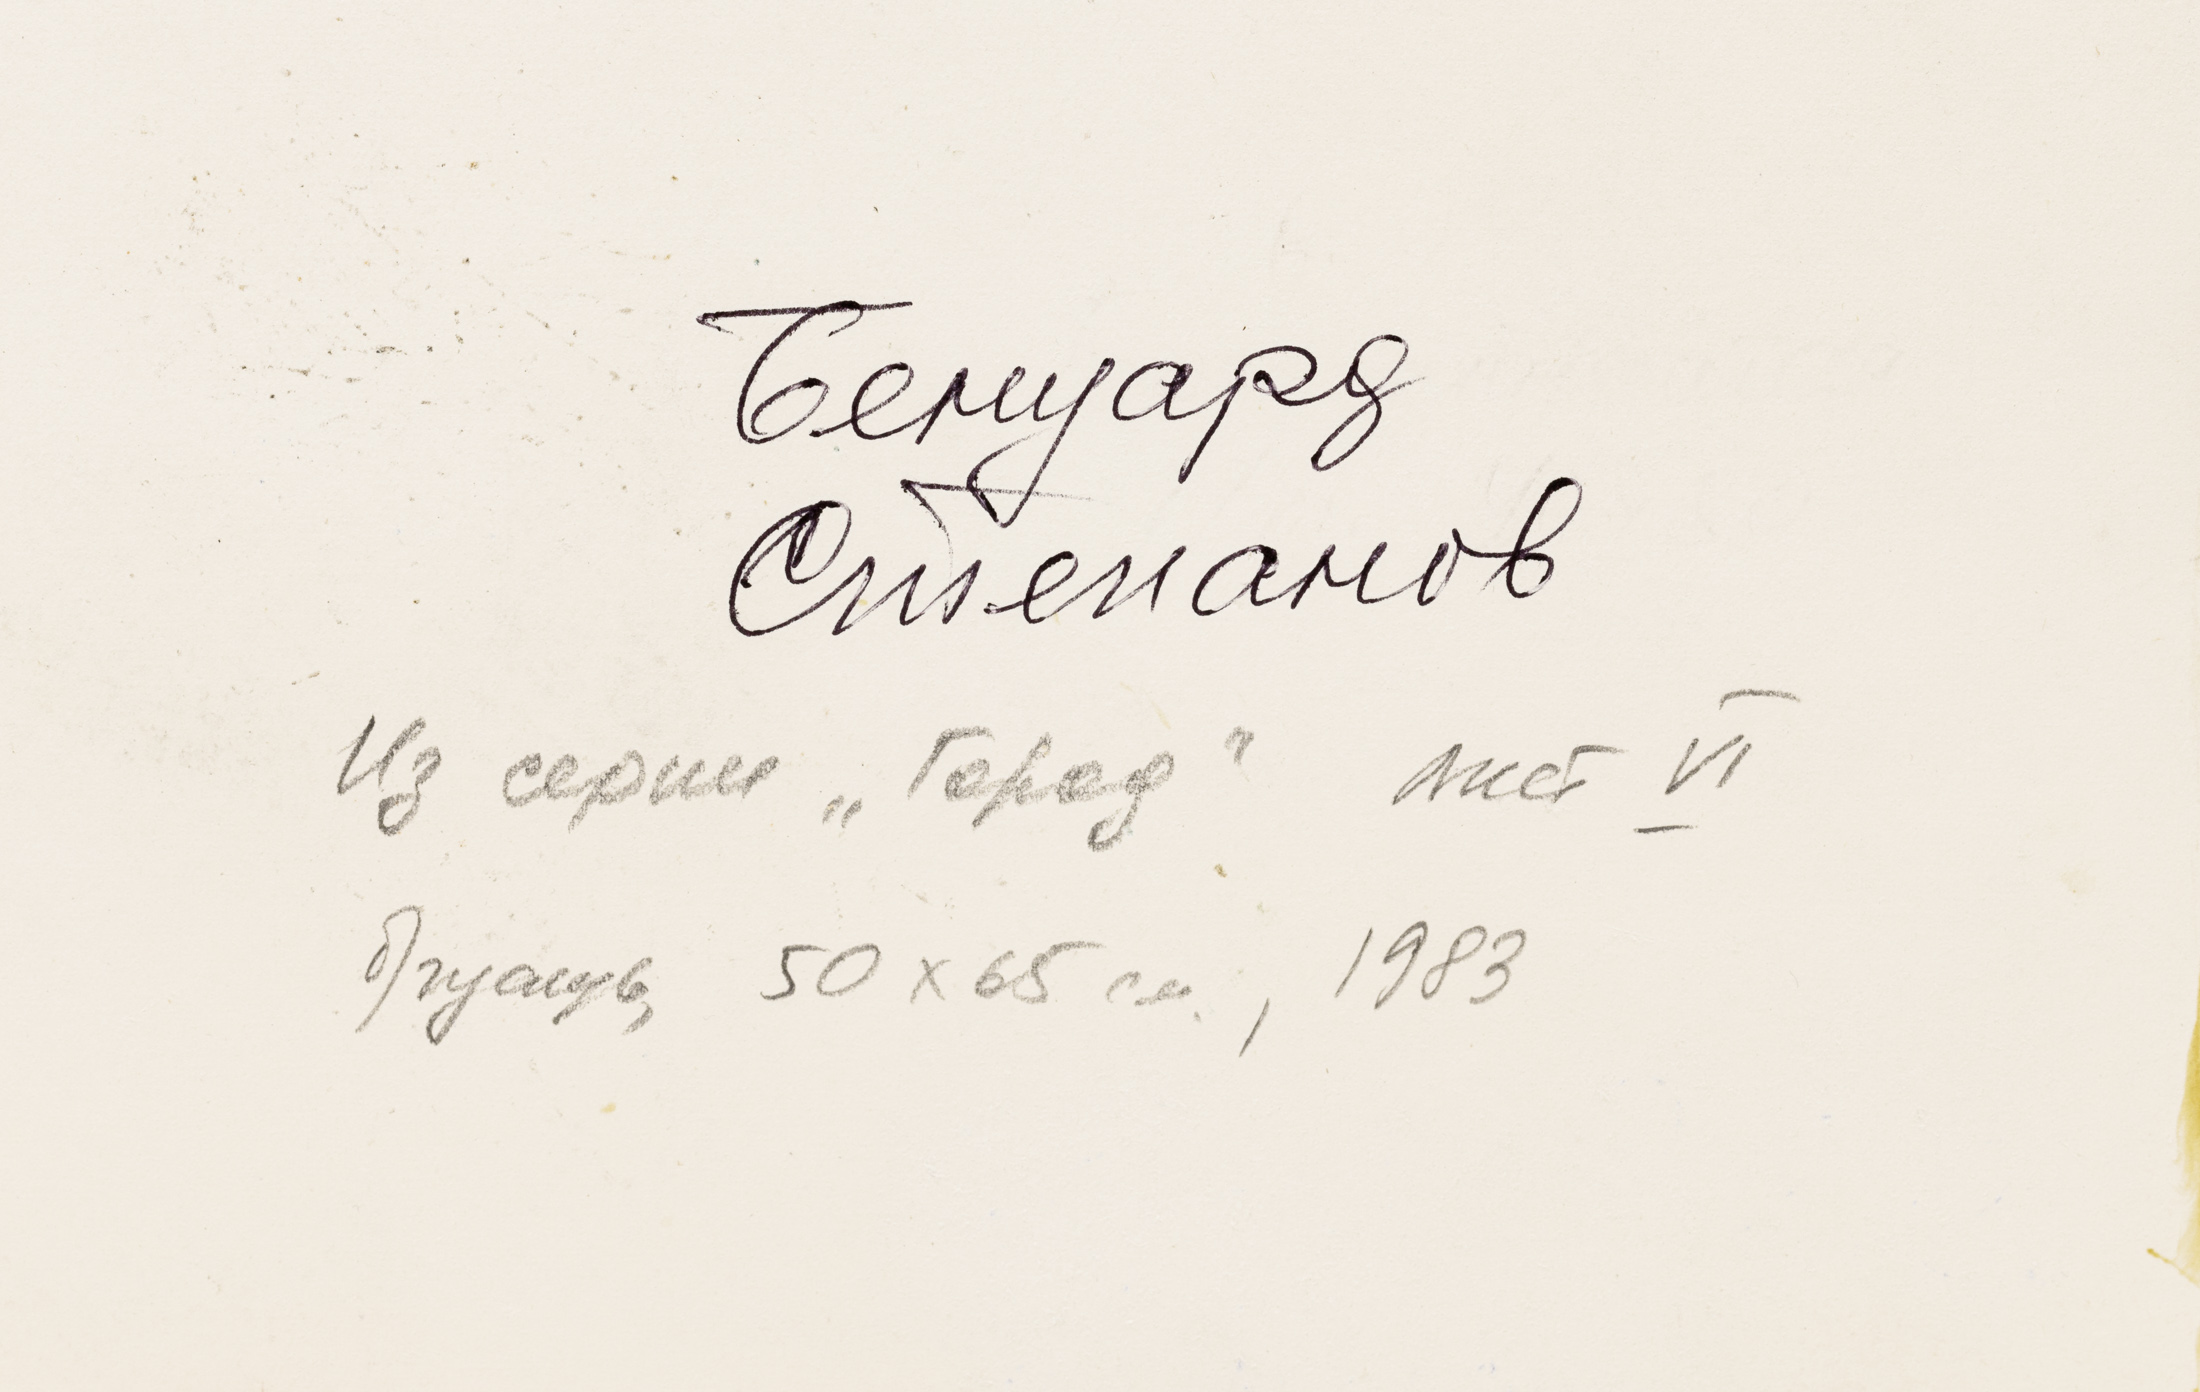 Бенуард
Степанов
Из серии „Город" лист VI
б/гуашь, 50 x 65 см., 1983